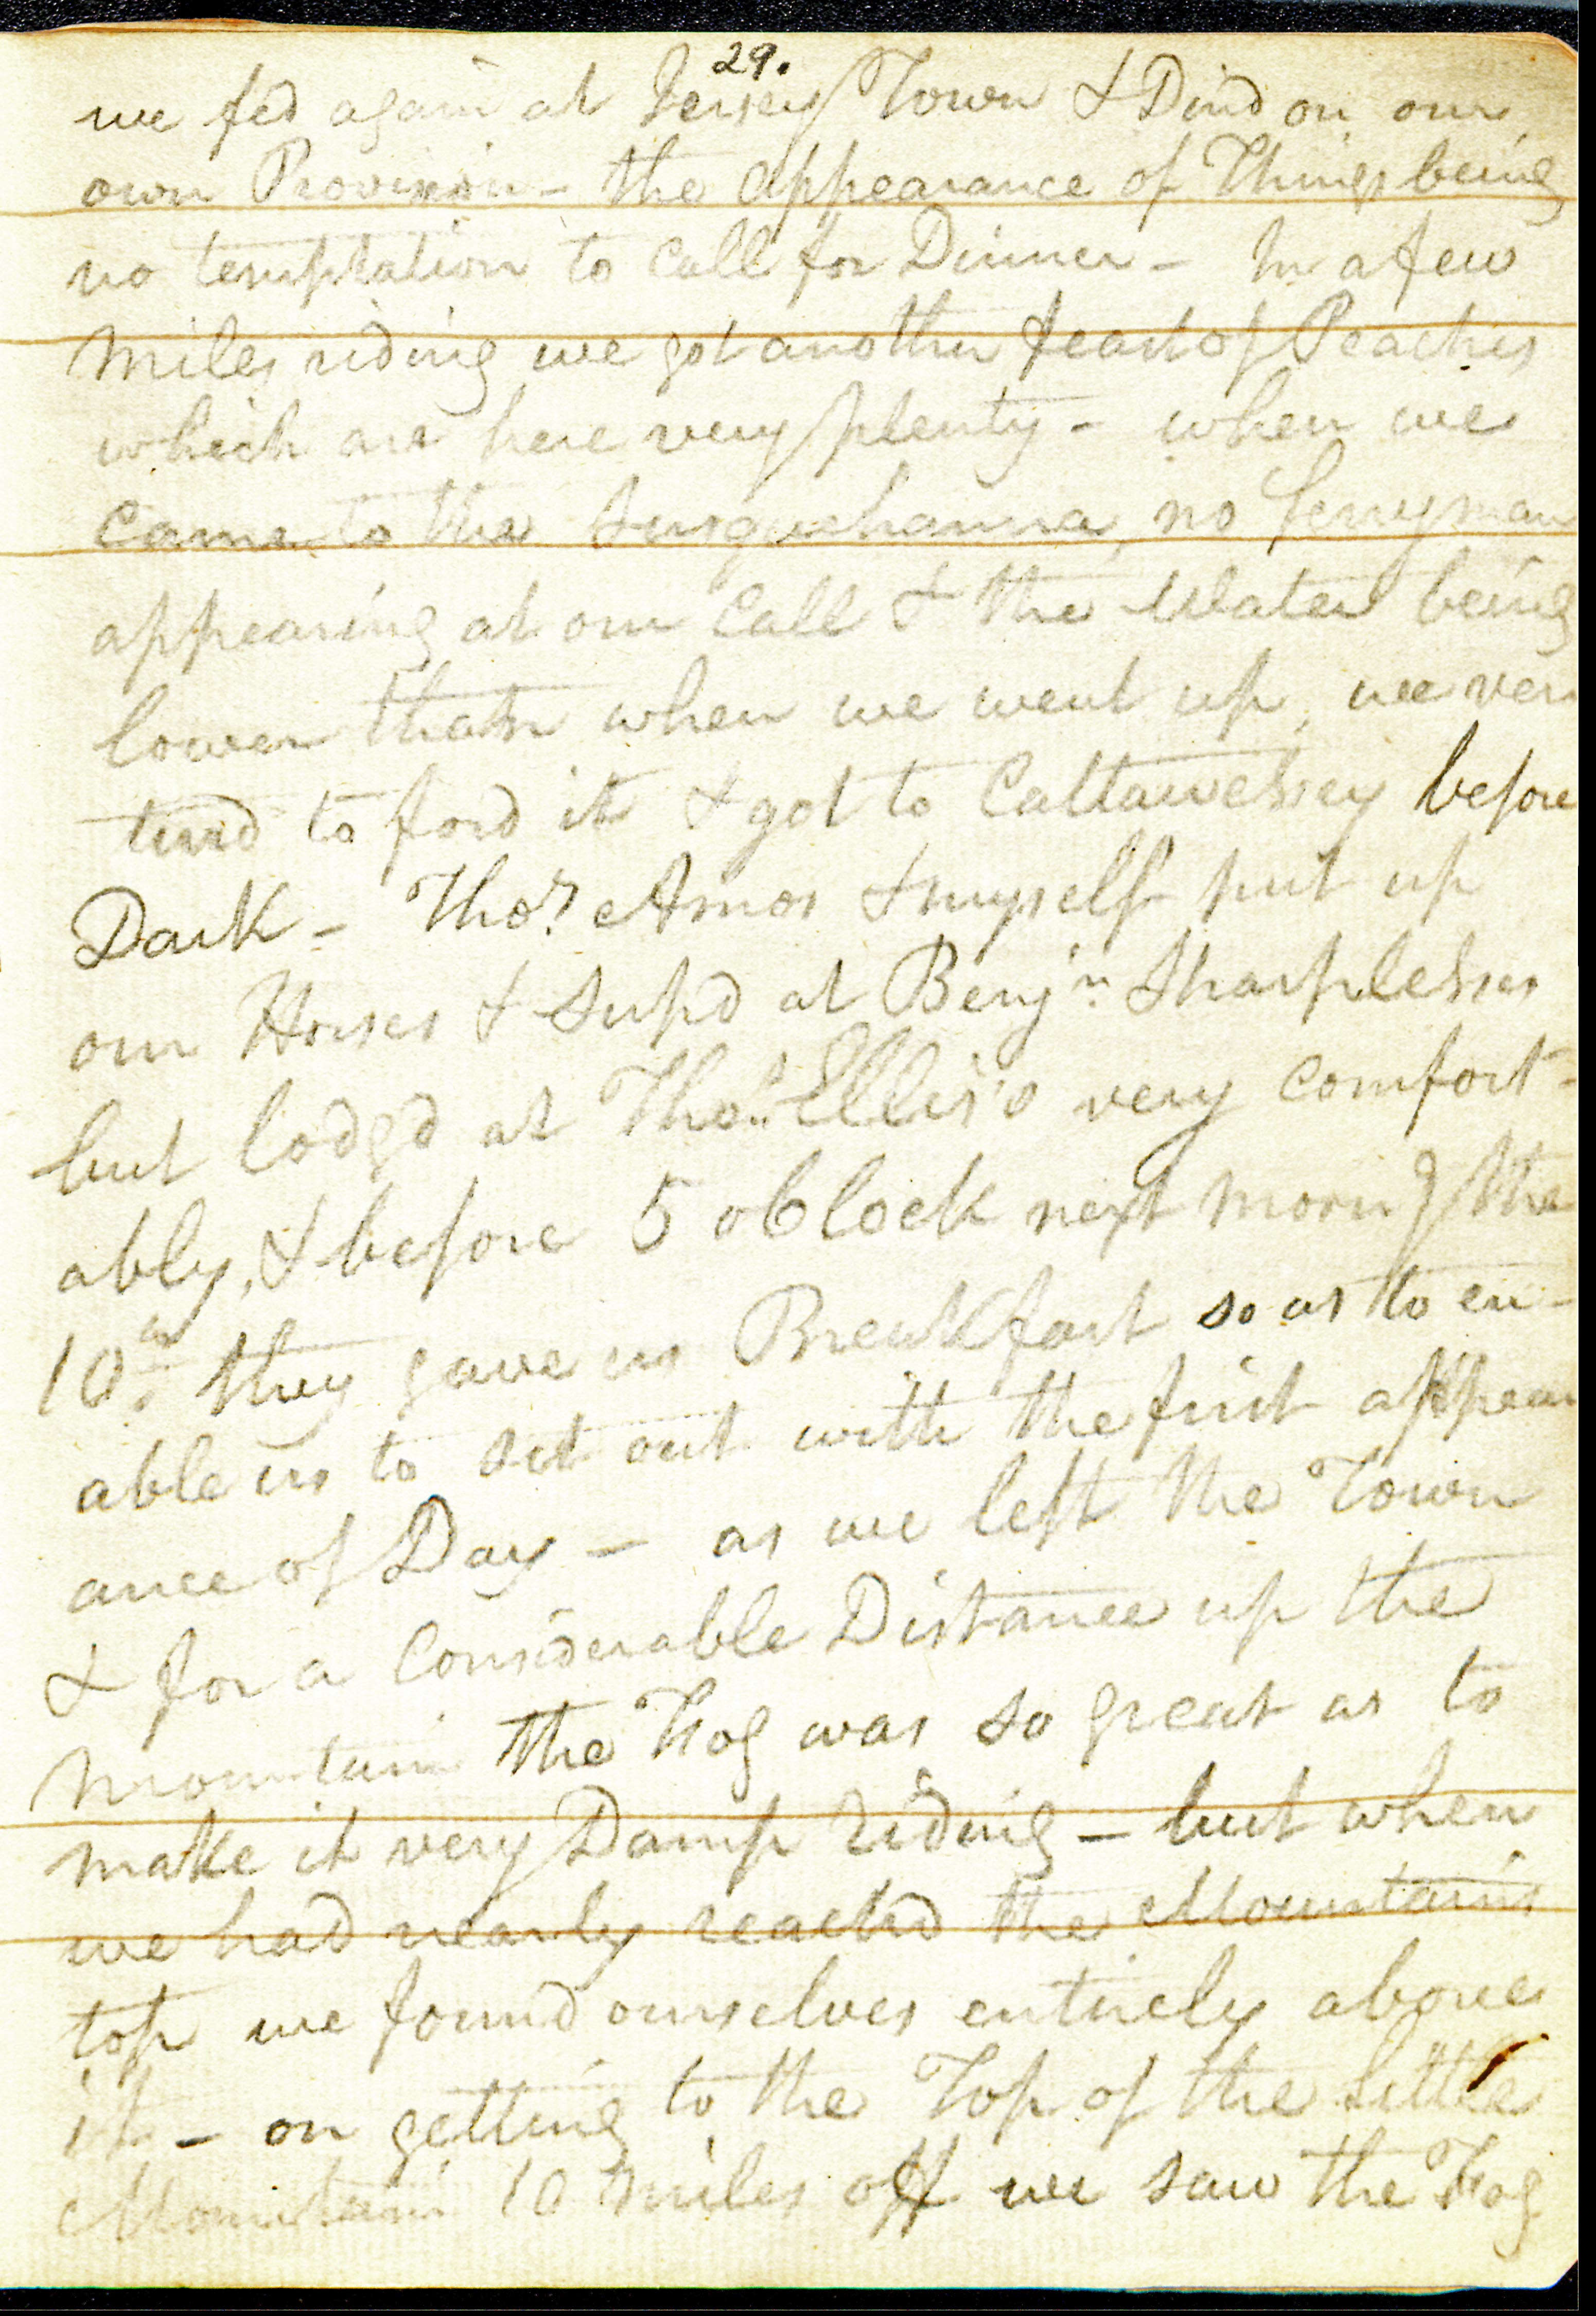 29.
we fed again at Jersey Town & Dind on our
own Provision - the appearance of Things being
no temptation to Call for Dinner - In a few
Miles riding we got another feast of Peaches
which are here very plenty - when we
Came to the Susquehanna, no ferryman
appearing at our Call & the Water being
lower than when we went up, we ven
turd to ford it & got to Cattawessey before
Dark - Thos. Amos & myself put up
our Horses & Supd at Benjn. Sharplesses
but lodgd at Thos. Ellis's very Comfort-
ably, & before 5 oClock next morng the
10th. they gave us Breakfast so as to en-
able us to set out with the first appear
ance of Day - as we left the Town
& for a Considerable Distance up the
Mountain the Fog was so great as to
make it very Damp riding - but when
we had nearly reachd the Mountains
top we found ourselves entirely above
it - on getting to the Top of the little
Mountain 10 Miles off we saw the Fog